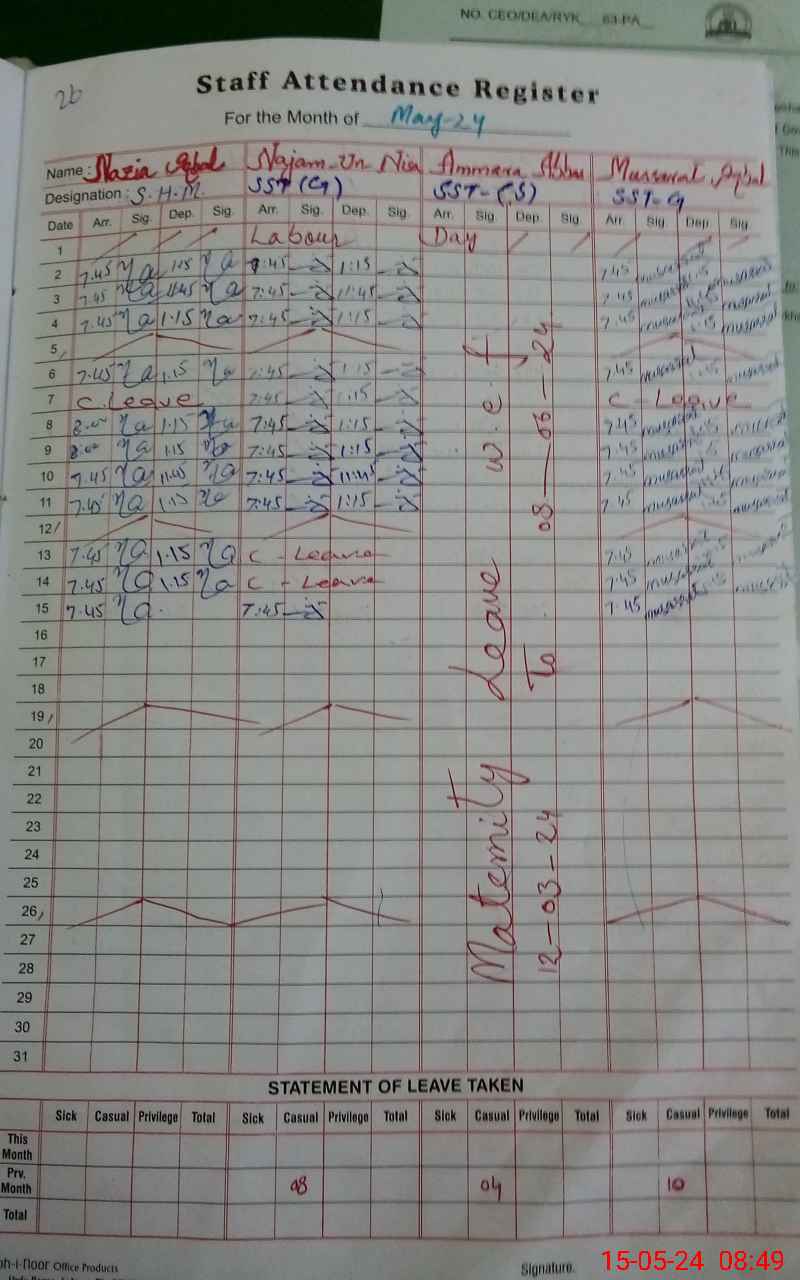 NO. CEO/DEA/RYK 63-PA
26
Staff Attendance Register
For the Month of May-24
Name: Nazia Iqbal Najam-Un Nisa Ammara Abbas Mussarat Iqbal
Designation: S.H.M SST (G) SST-(S) SST-G
Date Arr. Sig. Dep. Sig. Arr. Sig. Dep. Sig. Arr. Sig. Dep. Sig. Arr. Sig. Dep. Sig.
1 Labour Day
2 7.45 Na 1.15 Na 7:45 1:15 7.45
3 7.45 Na 11.45 Na 7:45 11:45 7.45
4 7.45 Na 1.15 Na 7:45 1:15 7.45 1.15
5
6 7.45 Na 1.15 Na 7:45 1:15 7.45
7 C. Leave 7:45 1.15 C - Leave
8 8.00 Na 1.15 Na 7:45 1:15 7.45
9 8.00 Na 1.15 Na 7:45 1:15 7.45
10 7.45 Na 11.45 Na 7:45 11:45 7.45
11 7.45 Na 1.15 Na 7:45 1:15 7.45
12
13 7.45 Na 1.15 Na C - Leave 7.45
14 7.45 Na 1.15 Na C - Leave 7.45
15 7.45 Na. 7:45 7.45
16
17
18
19
20
21
22
23
24
25
26
27
28
29
30
31
Maternity Leave w.e.f
12-03-24 To 08-06-24
STATEMENT OF LEAVE TAKEN
Sick Casual Privilege Total Sick Casual Privilege Total Sick Casual Privilege Total Sick Casual Privilege Total
This Month
Prv. Month 08 04 10
Total
oh-i-noor Office Products
Signature.
15-05-24 08:49